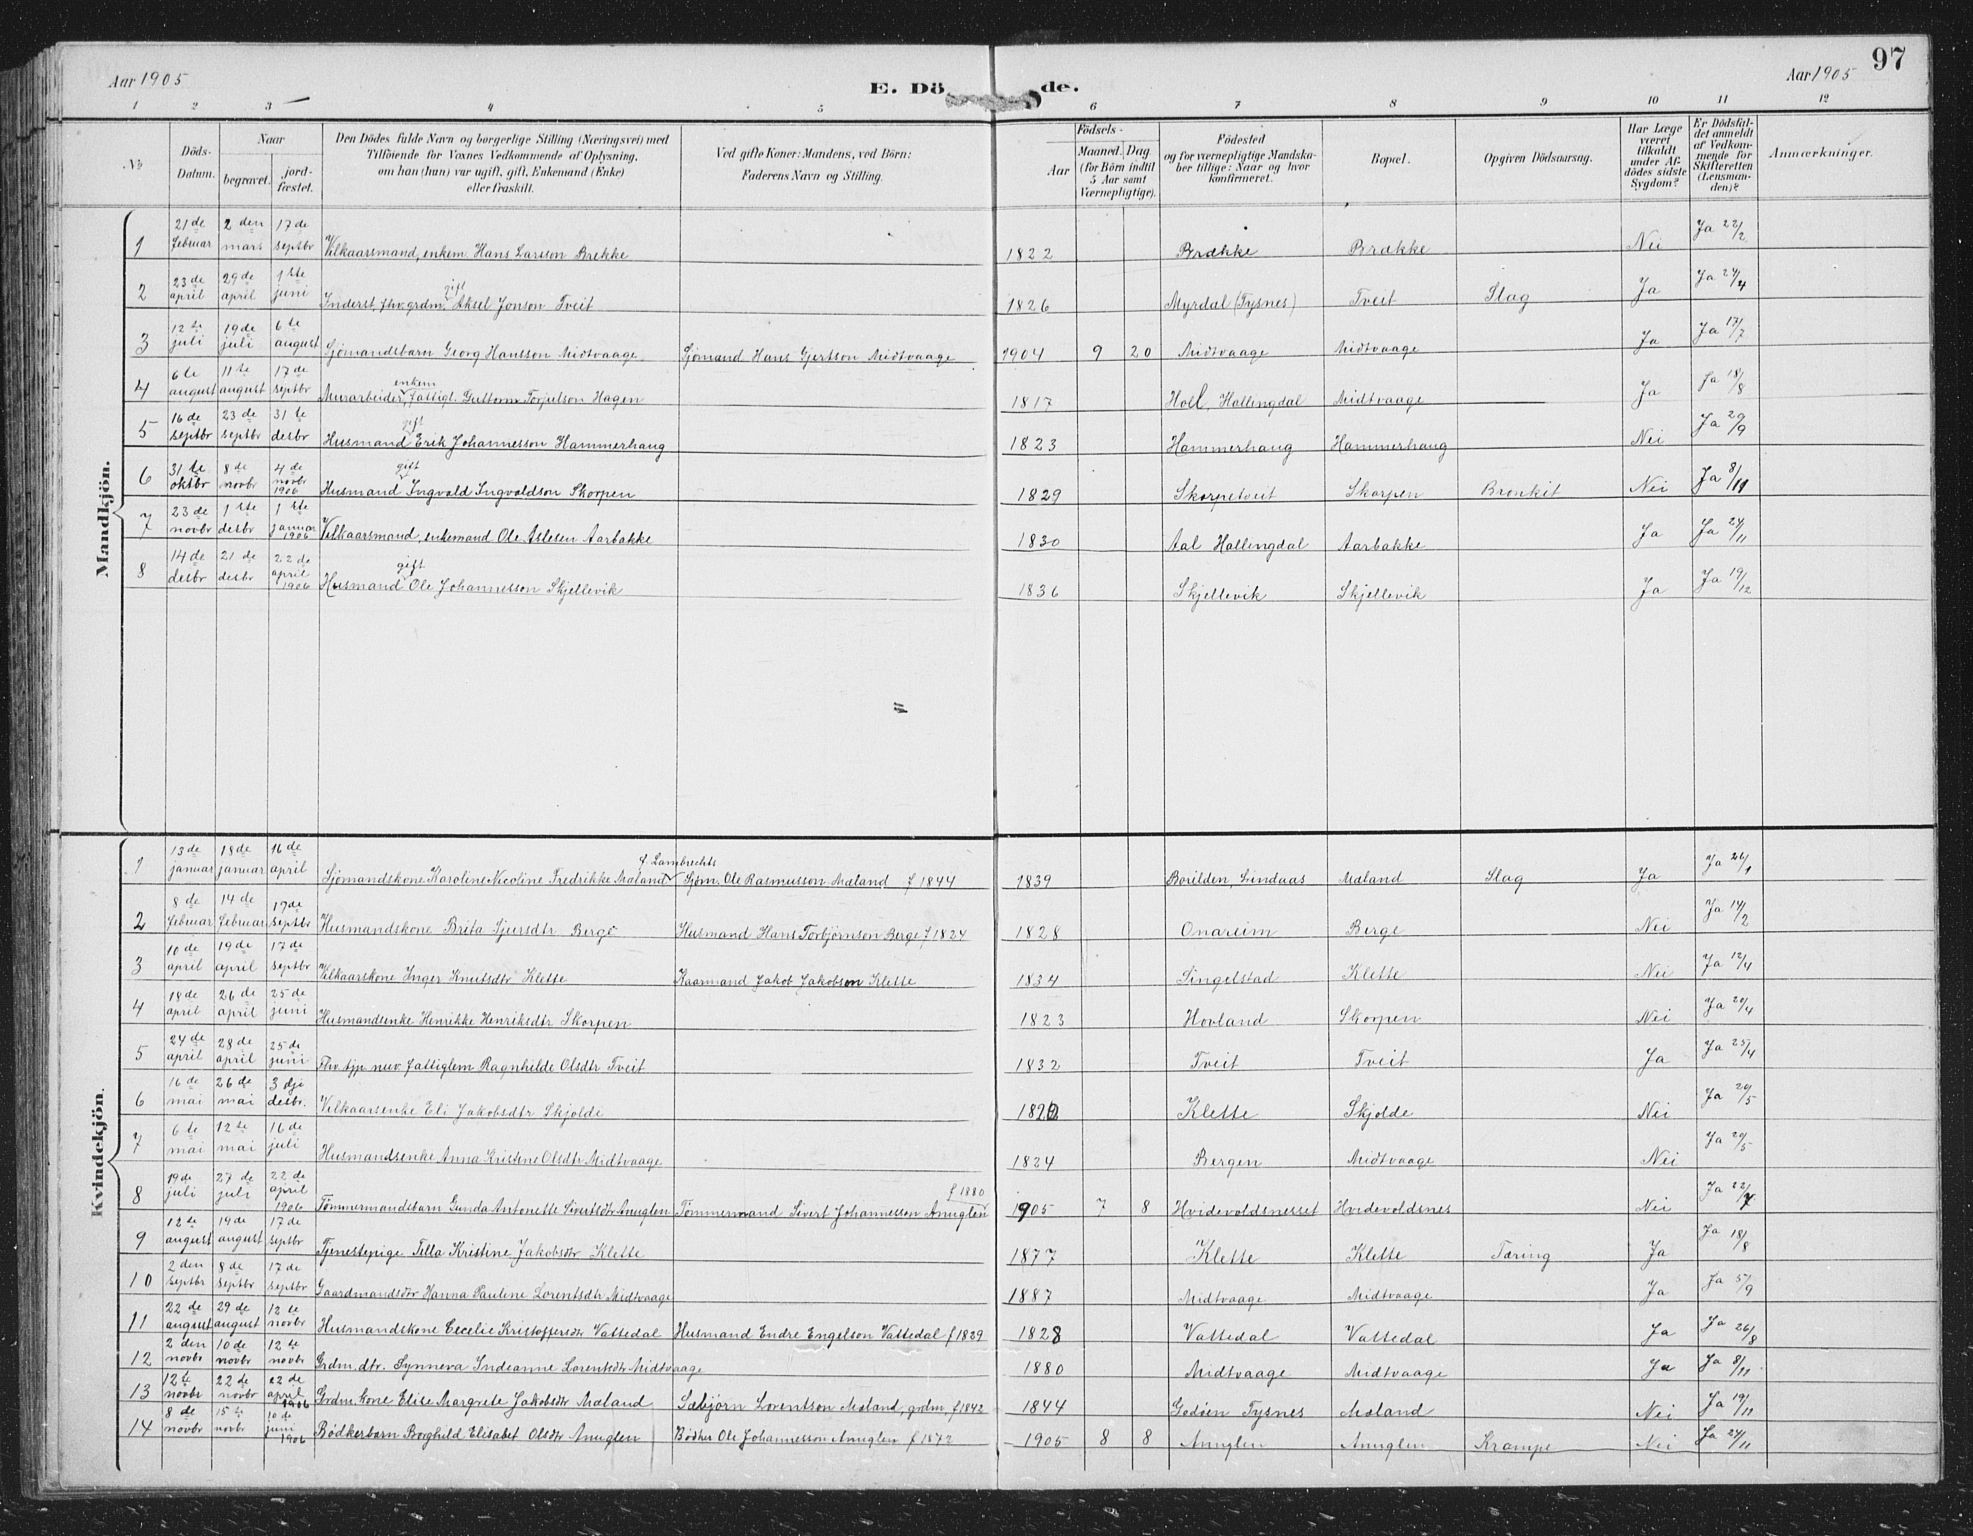 Aar 1905 E. Dö de. Aar 1905 97
1 2 3 4 5 6 7 8 9 10 11 12
№ Döds-Datum. Naar begravet. jord-fæstet. Den Dödes fulde Navn og borgerlige Stilling (Næringsvei) med Tilföiende for Voxnes Vedkommende af Oplysning, om han (hun) var ugift, gift, Enkemand (Enke) eller fraskilt. Ved gifte Koner: Mandens, ved Börn: Faderens Navn og Stilling. Födsels- Aar Maaned. Dag (for Börn indtil 5 Aar samt Værnepligtige). Födested og for værnepligtige Mandska-ber tillige: Naar og hvor konfirmeret. Bopæl. Opgiven Dödsaarsag. Har Læge været tilkaldt under Af-dödes sidste Sygdom? Er Dödsfal-det anmeldt af Vedkom-mende for Skifteretten (Lensman-den)? Anmærkninger.
Mandkjön.
1 21de februar 2den mars 17de septbr Vilkaarsmand, enkem. Hans Larsson Brekke 1822 Brække Brække Nei Ja 22/2
2 23de april 29de april 1ste juni Inderst, fhv. grdm. gift Aksel Jonson Tveit 1826 Myrdal (Tysnes) Tveit Slag Ja Ja 24/4
3 12te juli 19de juli 6te august Sjömandsbarn Georg Hansson Midtvaage Sjömand Hans Gjertson Midtvaage 1904 9 20 Midtvaage Midtvaage Ja Ja 17/7
4 6te august 11te august 17de septbr Murarbeider, enkem fattigl. Guttorm Torjulson Hagen 1817 Hol, Hallingdal Midtvaage Ja Ja 18/8
5 16de septbr 23de septbr 31te desbr Husmand gift Erik Johannesson Hammerhaug 1823 Hammerhaug Hammerhaug Nei Ja 20/9
6 31te oktbr 8de novbr 4de novbr 1906 Husmand gift Ingvald Ingvaldson Skorpen 1829 Skorpetveit Skorpen Bronkit Nei Ja 8/11
7 23de novbr 1ste desbr 1ste januar 1906 Vilkaarsmand, enkemand Ole Aslesen Aarbakke 1830 Aal Hallingdal Aarbakke Ja Ja 24/11
8 14de desbr 21de desbr 22de april 1906 Husmand gift Ole Johannesson Skjellevik 1836 Skjellevik Skjellevik Ja Ja 19/12
Kvindekjön.
1 13de januar 18de januar 16de april Sjömandskone Karoline Nicoline Fredrikke Mæland f. Lambrechts Sjöm. Ole Rasmusson Mæland f 1844 1839 Lindaas Mæland Slag Ja Ja 26/1
2 8de februar 14de februar 17de septbr Husmandskone Brita Sjursdtr Berge Husmand Hans Torbjörnson Berge f 1824 1828 Onareim Berge Nei Ja 14/2
3 10de april 19de april 17de septbr Vilkaarskone Inger Knutsdtr Klette Kaarmand Jakob Jakobson Klette 1834 Singelstad Klette Nei Ja 12/4
4 18de april 26de april 25de juni Husmandsenke Henrikke Henriksdtr Skorpen 1823 Hovland Skorpen Nei Ja 20/4
5 24de april 28de april 25de juni Fhv. tjp. nuv. fattiglem Ragnhilde Olsdtr Tveit 1832 Tveit Tveit Ja Ja 25/4
6 16de mai 26de mai 3dje desbr. Vilkaarsenke Eli Jakobsdtr Skjolde Klette Skjolde Nei Ja 20/5
7 6te mai 12te mai 16de juli Husmandsenke Anna Kristine Olsdtr Midtvaage 1824 Bergen Midtvaage Nei Ja 20/5
8 19de juli 27de juli 22de april 1906 Tömmermandsbarn Gunda Antonette Sivertsdtr Anuglen Tömmermand Sivert Johannesson Anuglen f 1880 1905 7 8 Hvidevoldsnesset Hvidevoldsnes Nei Ja 22/7
9 12te august 19de august 17de septbr Tjenestepige Tilla Kristine Jakobsdtr Klette 1877 Klette Klette Tæring Ja Ja 18/8
10 2den septbr 8de septbr 17de septbr Gaardmandsdtr Hanna Pauline Lorentsdtr Midtvaage 1887 Midtvaage Midtvaage Ja Ja 5/9
11 22de august 29de august 12te novbr Husmandskone Cecelie Kristoffersdtr Vattedal Husmand Endre Engelson Vattedal f 1829 1828 Vattedal Vattedal Ja Ja 26/8
12 2den novbr 10de novbr 12te novbr Grdm.dtr. Synneva Indianne Lorentsdtr Midtvaage 1880 Midtvaage Midtvaage Ja Ja 8/11
13 12te novbr 22de novbr 22de april 1906 Grdm. kone Elise Margrete Jakobsdtr Mæland Sæbjörn Lorentson Mæland, grdm. f 1842 1844 Godöen Tysnes Mæland Nei Ja 19/11
14 8de novbr 15te novbr 10de juni 1906 Bödkerbarn Borghild Elisabet Olsdtr Anuglen Bödker Ole Johannesson Anuglen f 1872 1905 8 8 Anuglen Anuglen Krampe Nei Ja 24/11